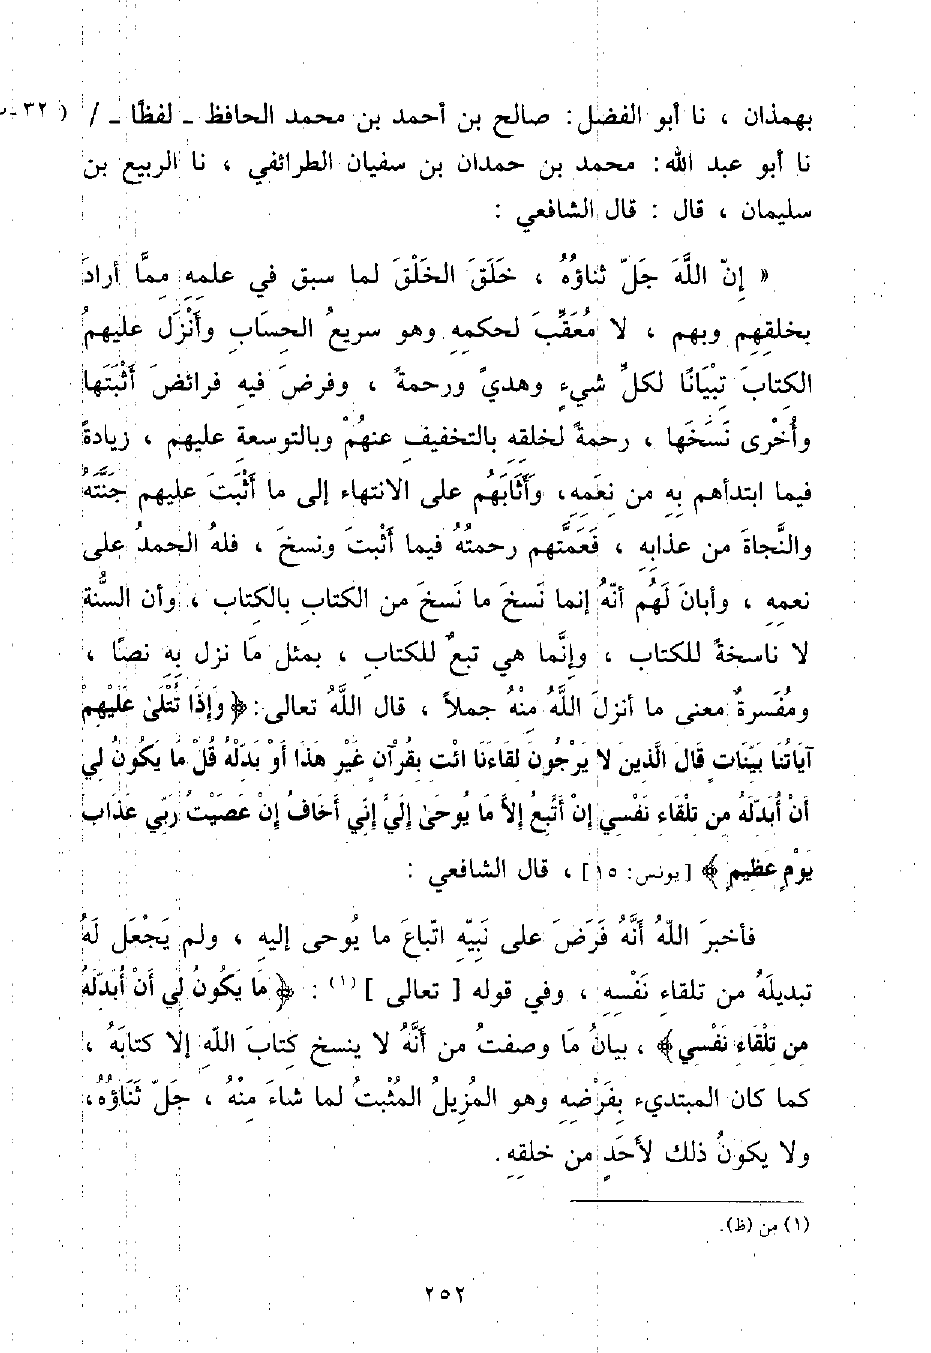 بهمذان ، نا أبو الفضل: صالح بن أحمد بن محمد الحافظ ـ لفظًا ـ / ( ٣٢ ـ
نا أبو عبد الله: محمد بن حمدان بن سفيان الطرائفي ، نا الربيع بن
سليمان ، قال : قال الشافعي :
« إنّ اللَّهَ جَلّ ثناؤُهُ ، خَلَقَ الخَلْقَ لما سبق في علمِهِ ممَّا أرادَ
بخلقِهِم وبهم ، لا مُعَقِّبَ لحكمِهِ وهو سريعُ الحسَابِ وأَنْزَل عليهمُ
الكتابَ تِبْيَانًا لكلِّ شيءٍ وهديً ورحمةً ، وفرضَ فيهِ فرائضَ أَثْبَتَها
وأُخْرى نَسَخَها ، رحمةً لخلقِهِ بالتخفيفِ عنهُمْ وبالتوسعةِ عليهم ، زيادةً
فيما ابتدأهم بِهِ من نِعَمِهِ، وأَثَابَهُم على الانتهاء إلى ما أَثْبَتَ عليهم جَنَّتَهُ
والنَّجاةَ من عذابِهِ ، فَعَمَّتهم رحمتُهُ فيما أَثْبتَ ونسخَ ، فلهُ الحمدُ على
نعمِهِ ، وأبانَ لَهُم أنّهُ إنما نَسخَ ما نَسخَ من الكتابِ بالكتاب ، وأن السُّنة
لا ناسخةً للكتاب ، وإنَّما هي تبعٌ للكتاب ، بمثل مَا نزل بِهِ نصًا ،
ومُفَسرةٌ معنى ما أنزلَ اللَّهُ مِنْهُ جملاً ، قال اللَّهُ تعالى: ﴿ وَإِذَا تُتْلَىٰ عَلَيْهِمْ
آيَاتُنَا بَيِّنَاتٍ قَالَ الَّذِينَ لا يَرْجُونَ لِقَاءَنَا ائْتِ بِقُرْآنٍ غَيْرِ هَذَا أَوْ بَدِّلْهُ قُلْ مَا يَكُونُ لِي
أَنْ أُبَدِّلَهُ مِن تِلْقَاءِ نَفْسِي إِنْ أَتَّبِعُ إِلاَّ مَا يُوحَىٰ إِلَيَّ إِنِّي أَخَافُ إِنْ عَصَيْتُ رَبِّي عَذَابَ
يَوْمٍ عَظِيمٍ ﴾ [يونس: ١٥] ، قال الشافعي :
فأخبرَ اللَّهُ أنَّهُ فَرَضَ على نَبيِّهِ اتّباعَ ما يُوحى إليهِ ، ولم يَجْعَل لَهُ
تبديلَهُ من تلقاءِ نَفْسِهِ ، وفي قوله [ تعالى ] (١) : ﴿ مَا يَكُونُ لِي أَنْ أُبَدِّلَهُ
مِن تِلْقَاءِ نَفْسِي ﴾ ، بيانُ مَا وصفتُ من أنَّهُ لا ينسخ كتابَ اللَّهِ إلا كتابَهُ ،
كما كان المبتديء بِفَرْضِهِ وهو المُزيلُ المُثْبتُ لما شاءَ مِنْهُ ، جَلّ ثَنَاؤُهُ،
ولا يكونُ ذلك لأحَدٍ من خلقِهِ.
(١) من (ظ).
٢٥٢